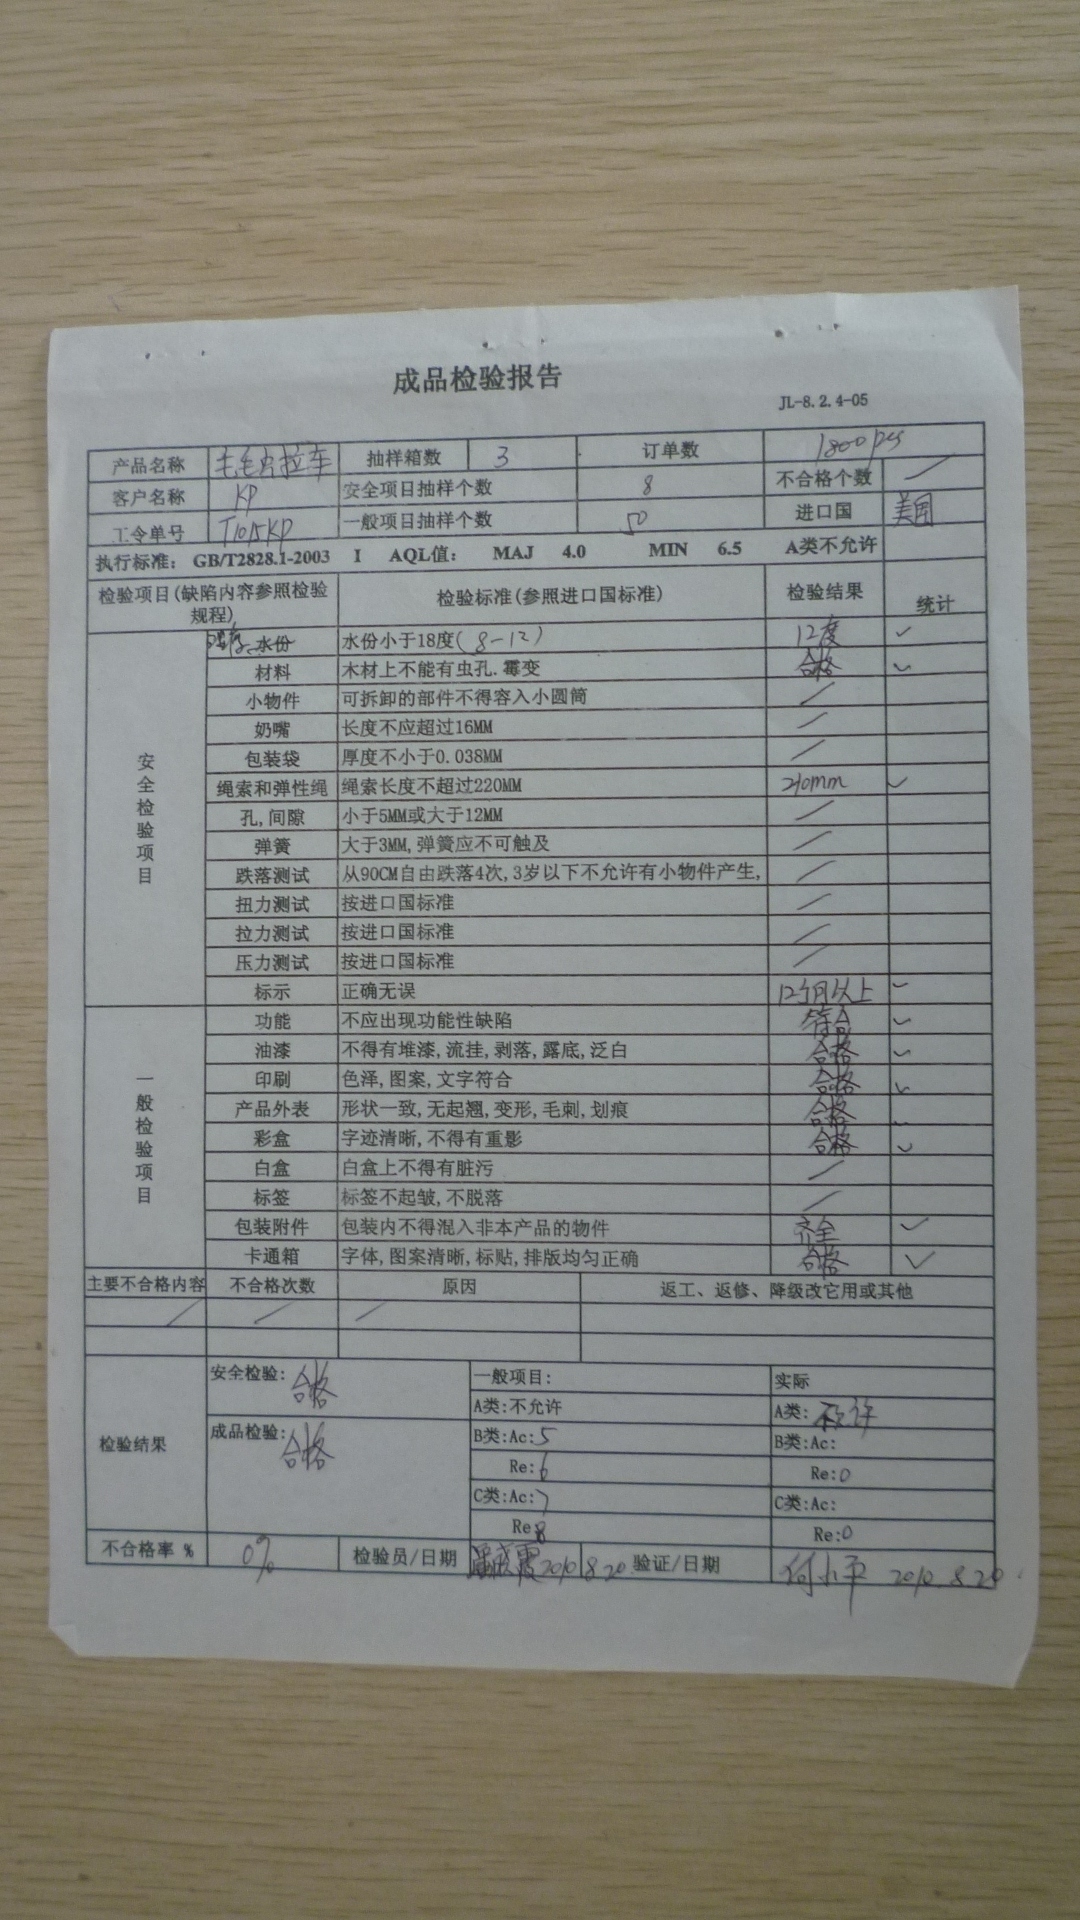 成品检验报告
JL-8.2.4-05
产品名称 毛毛虫拉车 抽样箱数 3 订单数 1800 pcs
客户名称 KP 安全项目抽样个数 8 不合格个数 /
工令单号 T1015KP 一般项目抽样个数 50 进口国 美国
执行标准: GB/T2828.1-2003 I AQL值: MAJ 4.0 MIN 6.5 A类不允许
检验项目(缺陷内容参照检验规程) 检验标准(参照进口国标准) 检验结果 统计
安全检验项目
水份 水份小于18度(8-12) 12度 ✓
材料 木材上不能有虫孔.霉变 合格 ✓
小物件 可拆卸的部件不得容入小圆筒 /
奶嘴 长度不应超过16MM /
包装袋 厚度不小于0.038MM /
绳索和弹性绳 绳索长度不超过220MM 210mm ✓
孔,间隙 小于5MM或大于12MM /
弹簧 大于3MM,弹簧应不可触及 /
跌落测试 从90CM自由跌落4次,3岁以下不允许有小物件产生, /
扭力测试 按进口国标准 /
拉力测试 按进口国标准 /
压力测试 按进口国标准 /
标示 正确无误 12个月以上 ✓
一般检验项目
功能 不应出现功能性缺陷 符合 ✓
油漆 不得有堆漆,流挂,剥落,露底,泛白 合格 ✓
印刷 色泽,图案,文字符合 合格 ✓
产品外表 形状一致,无起翘,变形,毛刺,划痕 合格 ✓
彩盒 字迹清晰,不得有重影 合格 ✓
白盒 白盒上不得有脏污 /
标签 标签不起皱,不脱落 /
包装附件 包装内不得混入非本产品的物件 齐全 ✓
卡通箱 字体,图案清晰,标贴,排版均匀正确 合格 ✓
主要不合格内容 不合格次数 原因 返工、返修、降级改它用或其他
/ / /
检验结果
安全检验: 合格 一般项目: 实际
A类:不允许 A类:
成品检验: 合格 B类:Ac:5 B类:Ac:
Re:6 Re:0
C类:Ac:7 C类:Ac:
Re:8 Re:0
不合格率 % 0% 检验员/日期 2010 8.20 验证/日期 何小平 2010.8.20